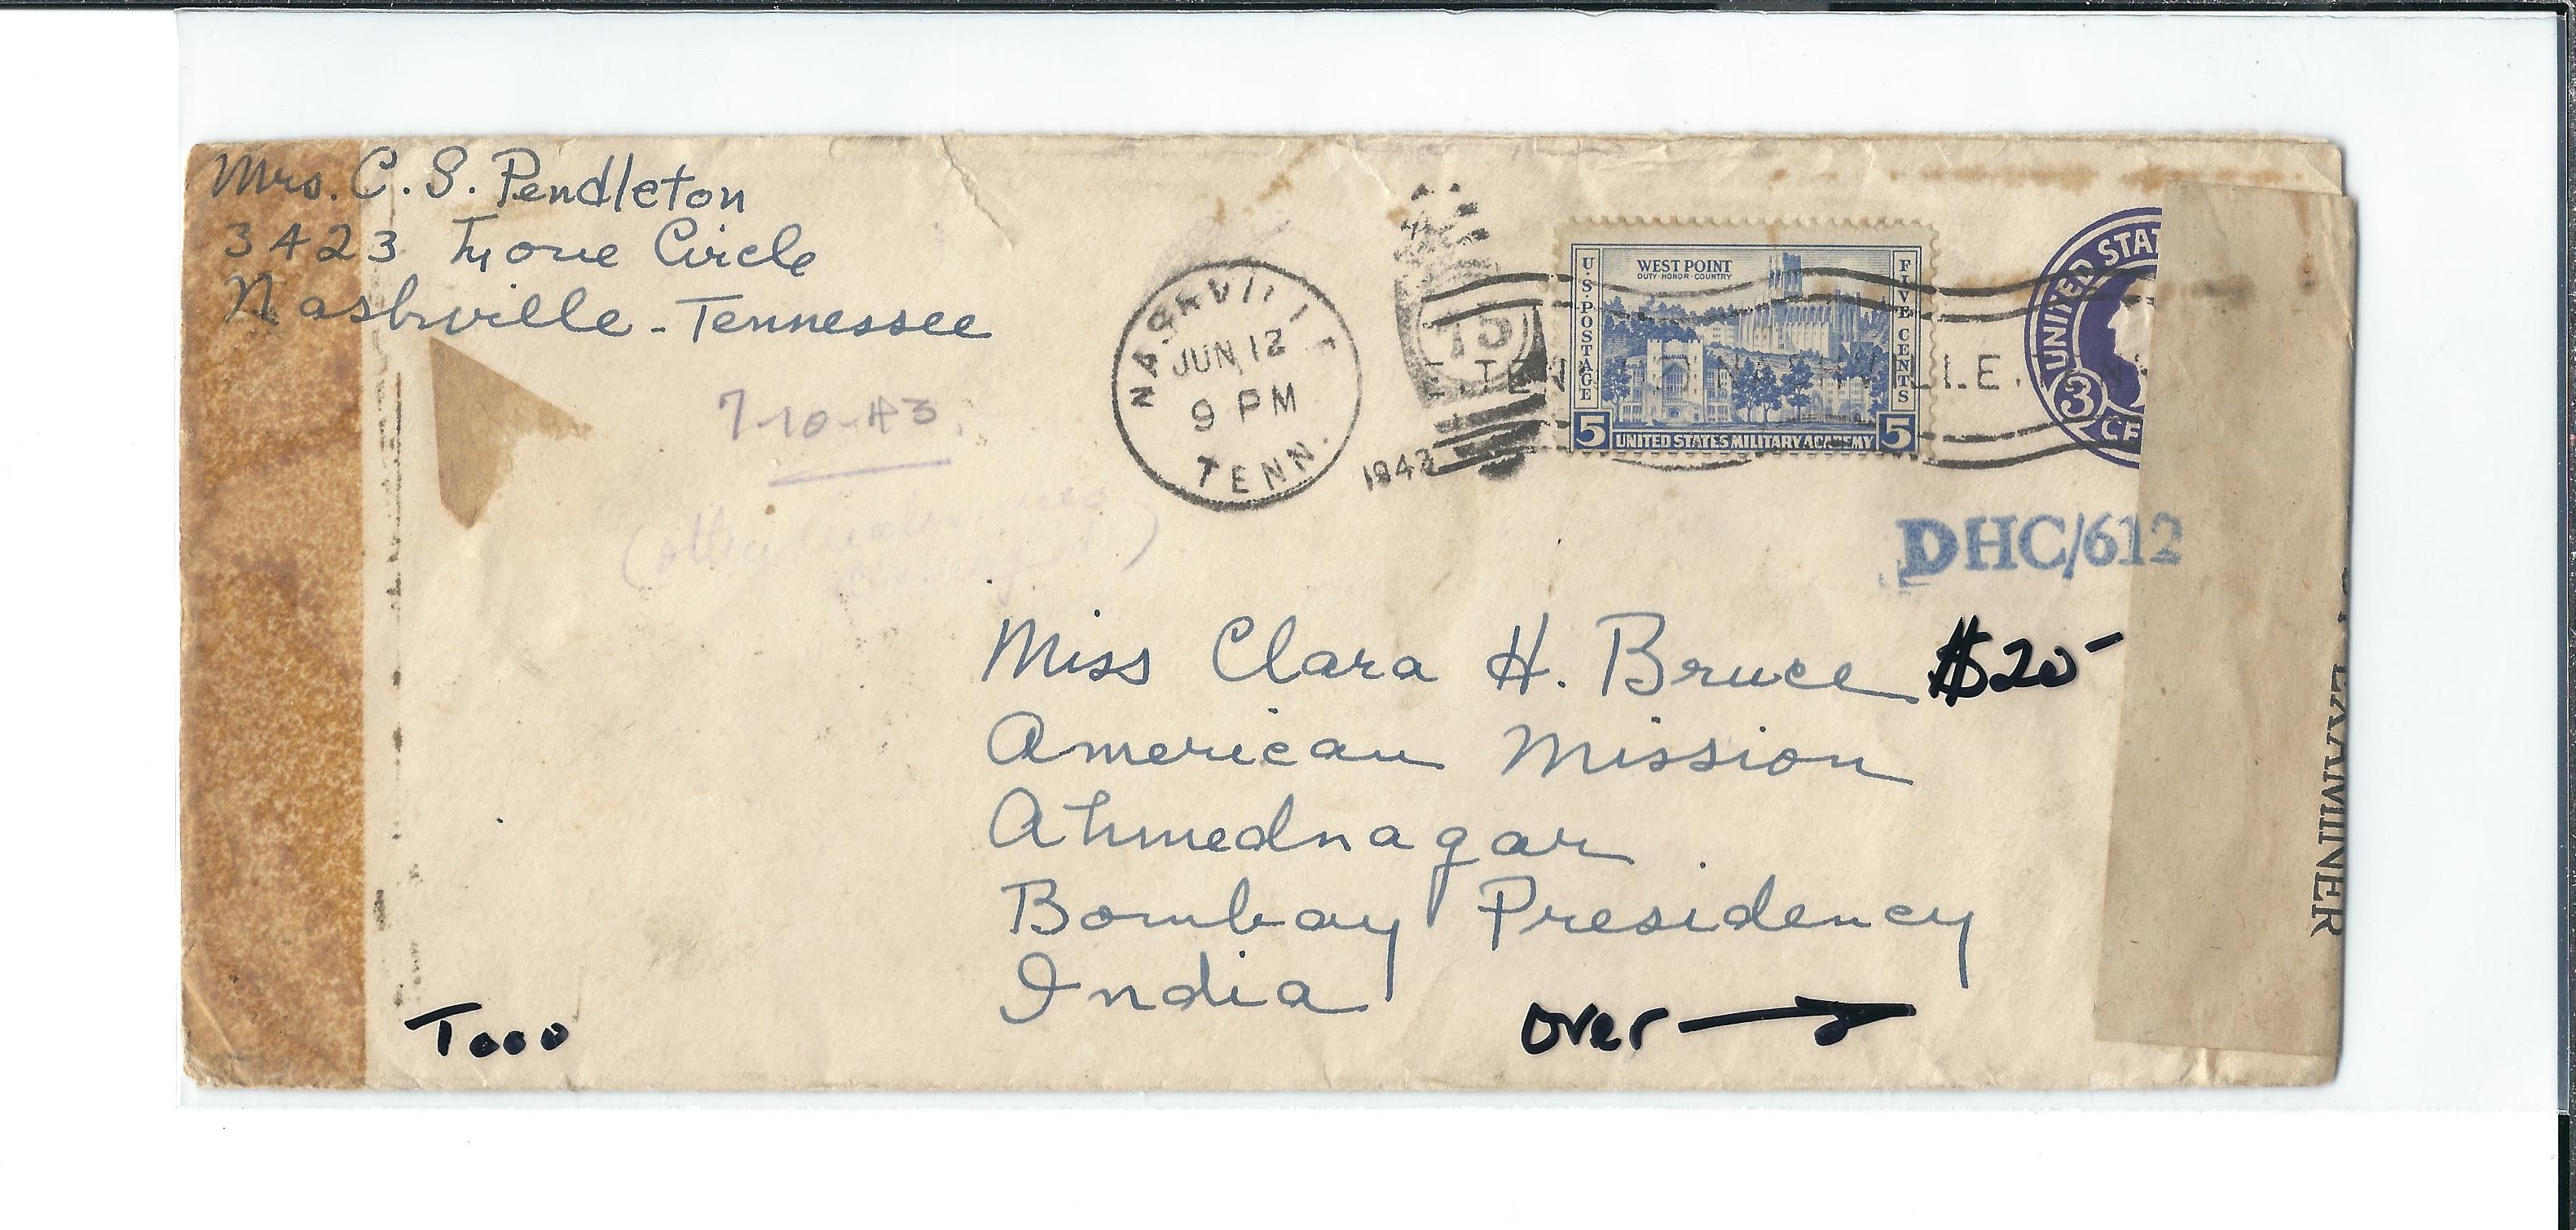 Mrs. C. S. Pendleton
3423 Love Circle
Nashville - Tennessee
7-10-43.
NASHVILLE
JUN 12
9 PM
TENN.
1943
15
WEST POINT
DUTY·HONOR·COUNTRY
U·S·POSTAGE
FIVE CENTS
5 UNITED STATES MILITARY ACADEMY 5
UNITED STAT
3
CE
DHC/612
Miss Clara H. Bruce $20-
American Mission
Ahmednagar
Bombay Presidency
India
Over
Tooo
EXAMINER